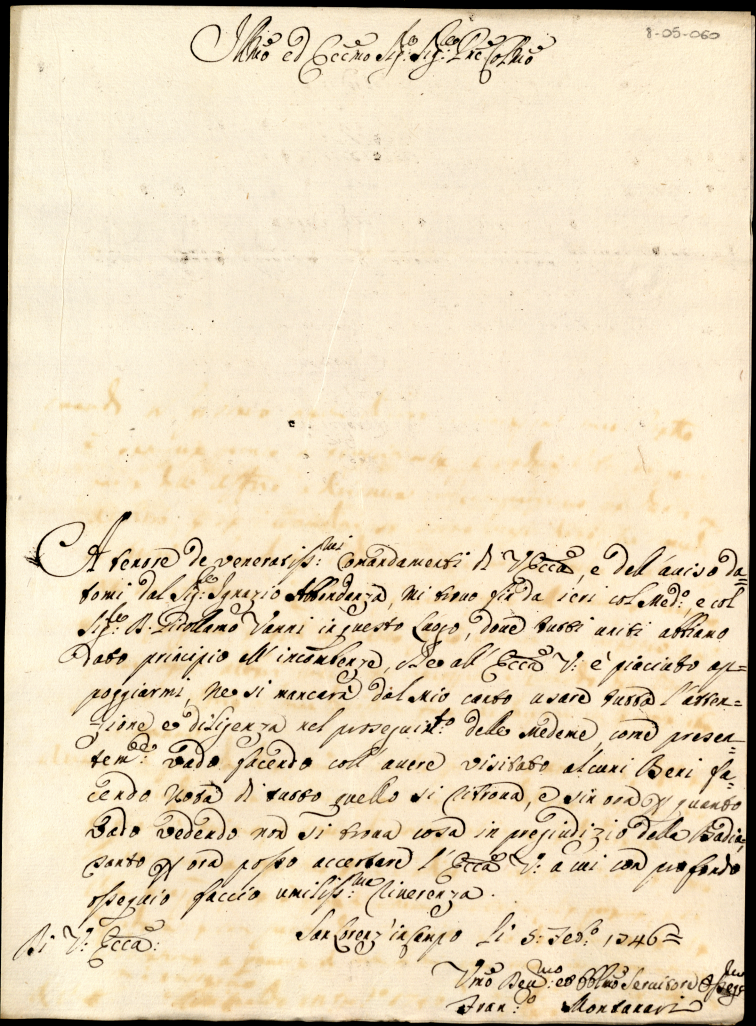 8-05-060
Illmo ed Eccmo Sig.r Sig.r Pne Colmo
A tenore de veneratiss:mi Comandamenti di V Ecca, e dell'aviso da=
tomi dal Sig.r Ignazio Abbondanza, mi trovo fin da ieri col Med.o e col
Sig.r D. Girollamo Vanni in questo Luogo, dove tutti uniti abbiamo
Dato principio all'incombenze, che all'Ecca V: è piaciuto ap=
poggiarmi, ne si mancarà dal mio canto usare tutta l'atten=
zione e diligenza nel proseguim.to delle medeme, come presen=
tem.te vado facendo coll'avere visitato alcuni Beni fa=
cendo Nota di tutto quello si ritrova, e sin ora p quanto
vado vedendo non si trova cosa in pregiudizio della Badia,
tanto p ora posso accertare l'Ecca V: a cui con profondo
ossequio faccio umiliss:ma riverenza.
Di V: Ecca: San Lorenz' in Campo Li 5: Feb.o 1746=
Umo Dev.mo ed Obblmo Servitore
Fran.co Montanari